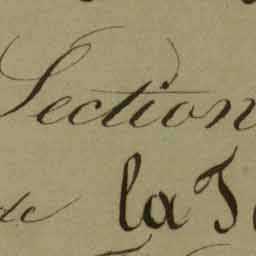 Section
de la